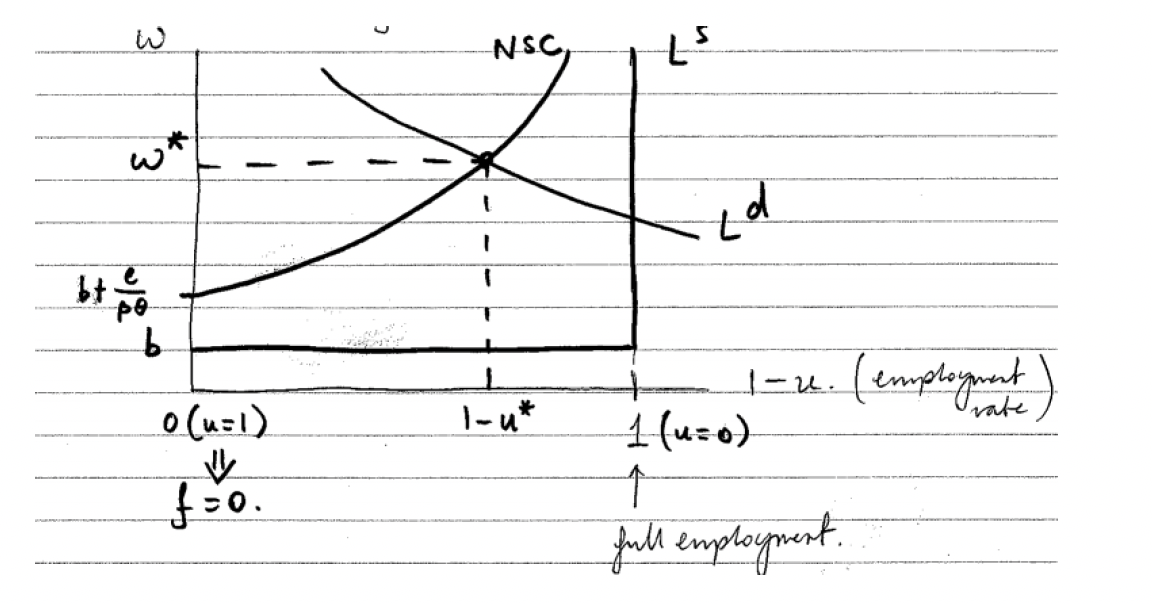 w
NSC
L^s
w*
L^d
b + e/pθ
b
1-u. (employment rate)
0 (u=1)
1-u*
1 (u=0)
⇓
f=0.
↑
full employment.